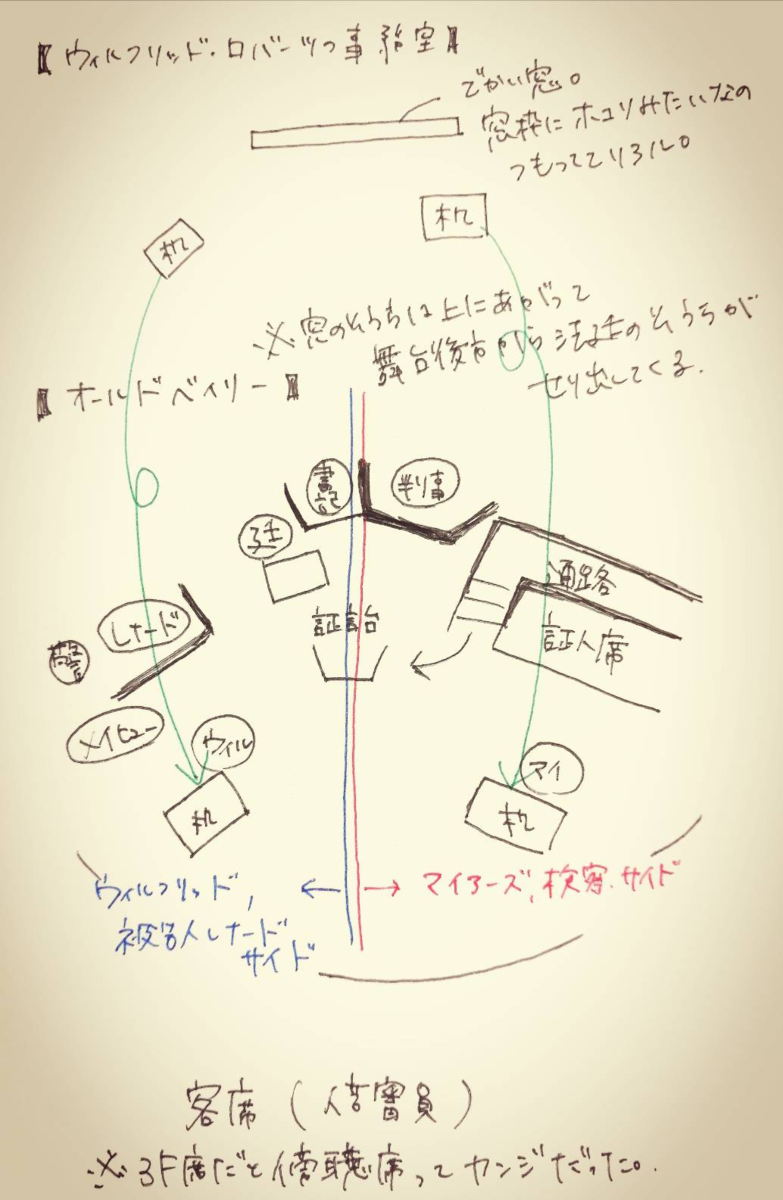 【ウィルフリッド・ロバーツの事務室】
でかい窓。
窓枠にホコリみたいなの
つもっててリアル。
机
机
※窓のそうちは上にあがって
舞台後方から法廷のそうちが
せり出してくる。
【オールドベイリー】
書記
判事
廷
通路
証言台
証人席
レナード
警
メイヒュー
ウィル
マイ
机
机
ウィルフリッド、
被告人レナード
サイド
マイアーズ、検察サイド
客席(陪審員)
※3F席だと傍聴席ってカンジだった。